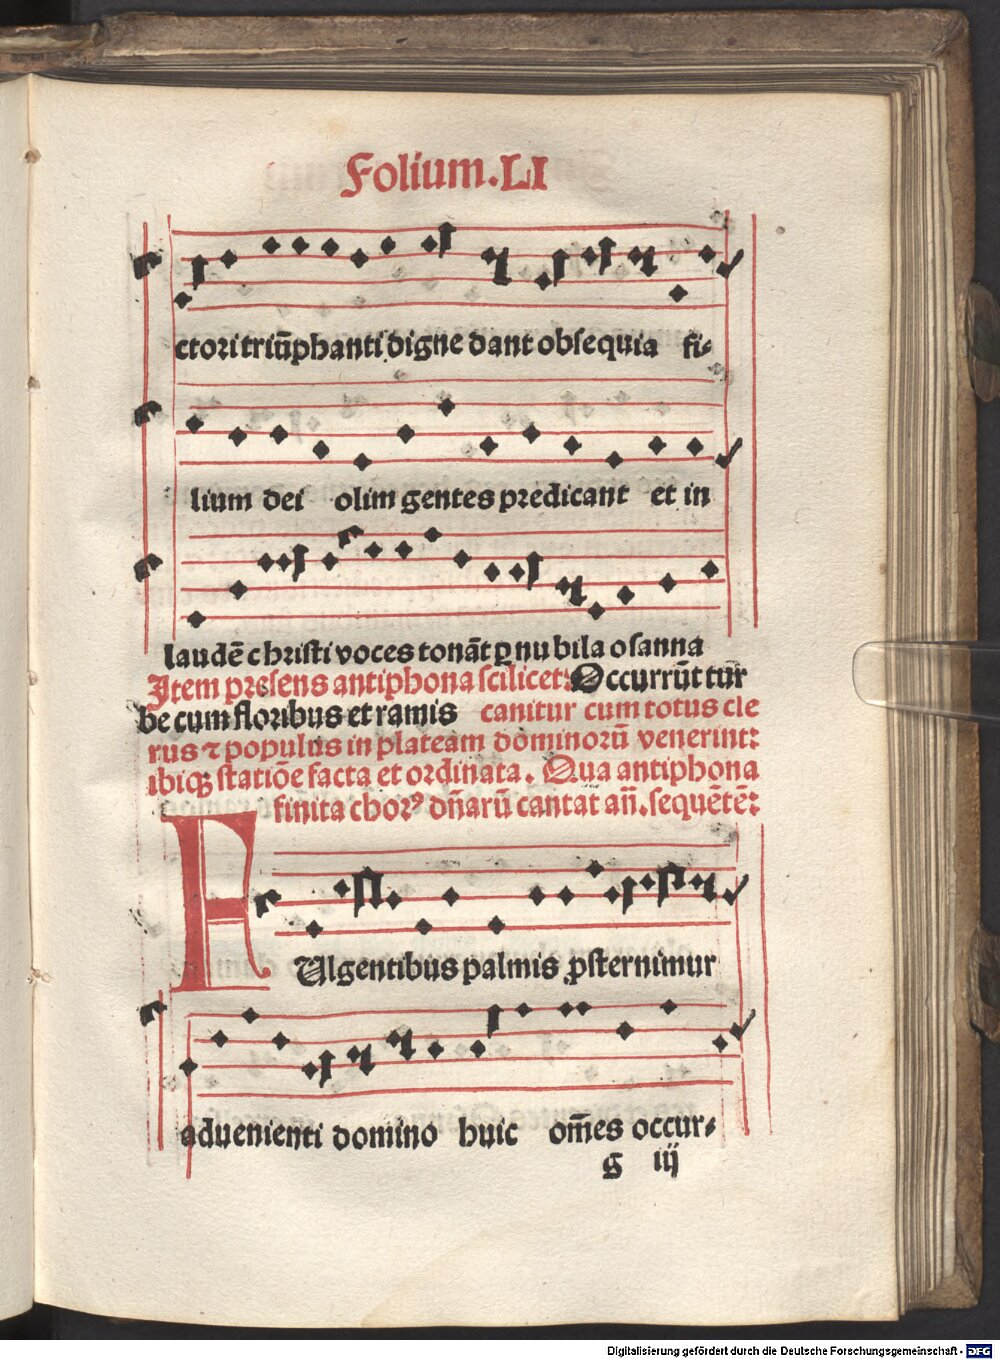 Folium.LI
ctori triūphanti digne dant obsequia fi-
lium dei olim gentes predicant et in
laudē christi voces tonāt ꝑ nubila osanna
Item presens antiphona scilicet: Occurrūt tur
be cum floribus et ramis canitur cum totus cle
rus ⁊ populus in plateam dominorū venerint:
ibiqꝫ statiōe facta et ordinata. Qua antiphona
finita chorꝰ dn̄arū cantat an̄. sequētē:
FUlgentibus palmis ꝓsternimur
aduenienti domino huic om̄es occur-
g iij
Digitalisierung gefördert durch die Deutsche Forschungsgemeinschaft - DFG